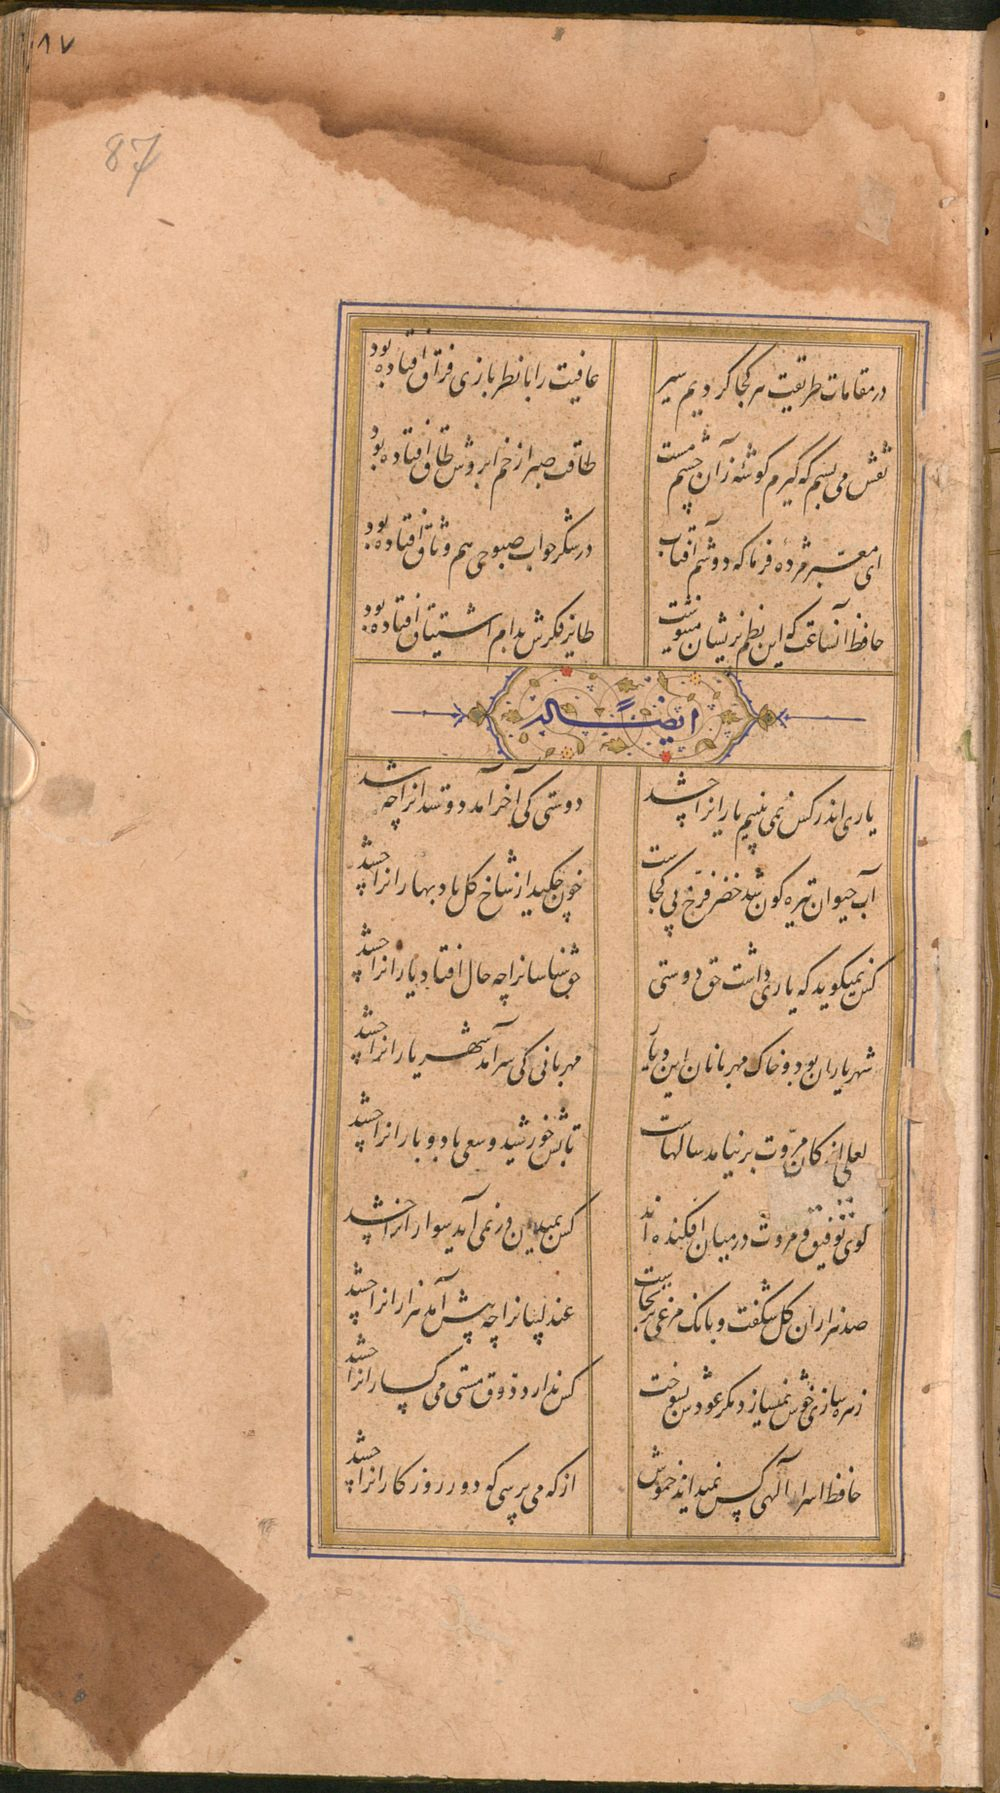 ۸۷
87
در مقامات طریقت هر کجا کردیم سیر عافیت را با نظر بازی فراق افتاده بود
نقش می بستم که گیرم گوشه زان چشم مست طاقت صبر از خم ابروش طاق افتاده بود
ای معبر مژده فرما که دوشم آفتاب در شکر خواب صبوحی هم وثاق افتاده بود
حافظ آنساعت که این نظم پریشان مینوشت طایر فکرش بدام اشتیاق افتاده بود
ایضاً له
یاری اندر کس نمی بینیم یارانرا چه شد دوستی کی آخر آمد دوستدارانرا چه شد
آب حیوان تیره کون شد خضر فرخ پی کجاست خون چکید از شاخ کل باد بهارانرا چه شد
کس نمیکوید که یاری داشت حق دوستی حق شناسانرا چه حال افتاد یارانرا چه شد
شهر یاران بود و خاک مهربانان این دیار مهربانی کی سر آمد شهریارانرا چه شد
لعلی از کان مروت بر نیامد سالهاست تابش خورشید و سعی باد و بارانرا چه شد
کوی توفیق و مروت در میان افکنده اند کس بمیدان در نمی آمد سوارانرا چه شد
صد هزاران کل شکفت و بانک مرغی بر نخاست عندلیبانرا چه پیش آمد هزارانرا چه شد
زهره سازی خوش نمیسازد مکر عودش بسوخت کس ندارد ذوق مستی می کسارانرا چه شد
حافظ اسرار الهی کس نمیداند خموش از که می پرسی که دور روزکارانرا چه شد